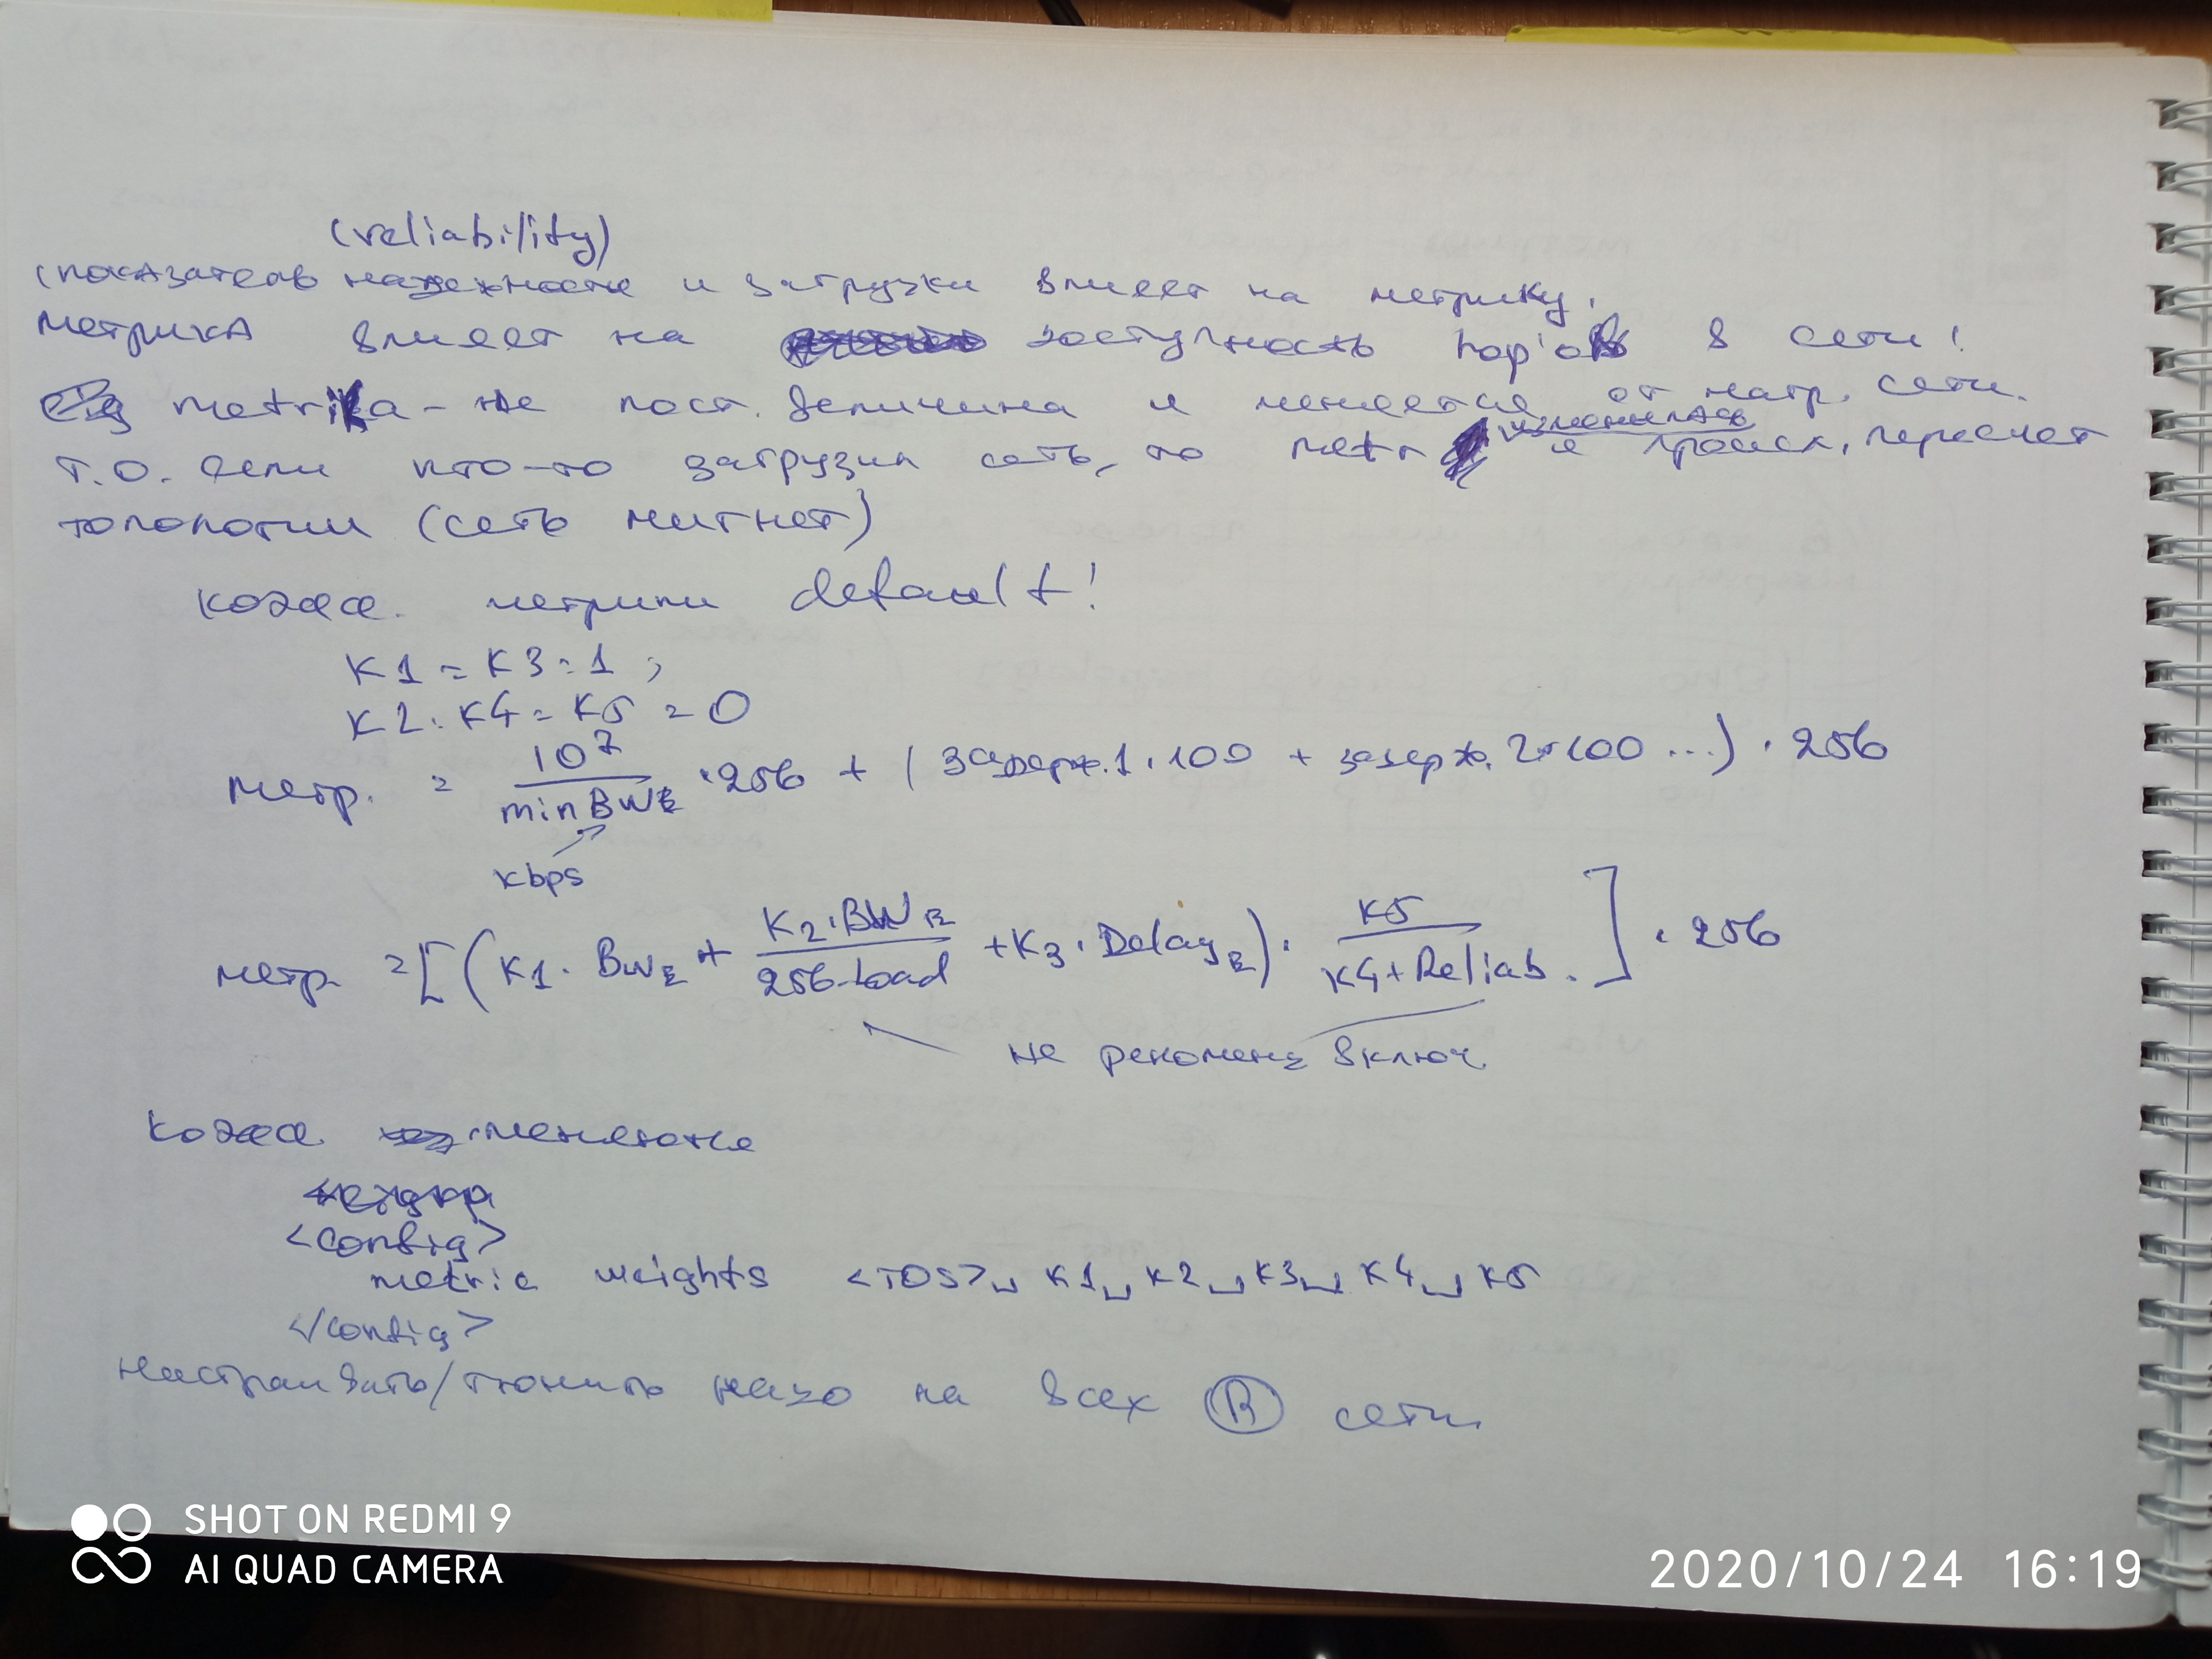 (reliability)
(показатель надежности и загрузки влияет на метрику.
метрика влияет на доступность hop'ов в сети!
metrika - не пост. величина и меняется от нагр. сети.
изменилась
т.о. если кто-то загрузил сеть, то metr и происх. пересчет
топологии (сеть мигнет)
коэфф. метрики default!
K1 = K3 = 1 ;
K2 = K4 = K5 = 0
метр. = 10^7 / min BW · 256 + (задерж.1 · 100 + задерж.2 · 100 ...) · 256
kbps
метр. = [(K1 · BW + K2 · BW / 256-Load + K3 · Delay) · K5 / K4 + Reliab.] · 256
не рекоменд включ.
коэфф. меняются
<config>
metric weights <TOS>␣ K1␣ K2␣ K3␣ K4␣ K5
</config>
настраивать/тюнить надо на всех Ⓡ сети.
SHOT ON REDMI 9
AI QUAD CAMERA
2020/10/24 16:19